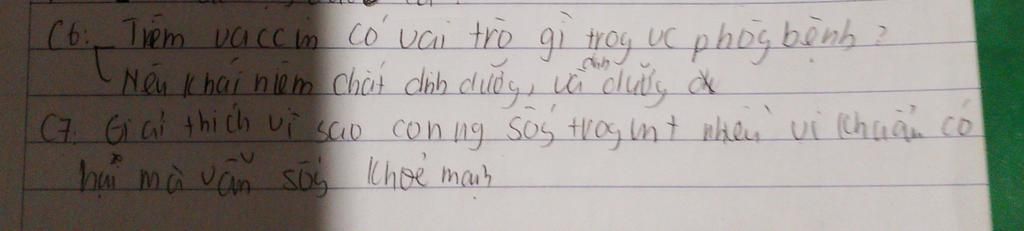 C6: Tiêm vaccin có vai trò gì trog vc phòg bệnh?
Nêu khái niệm chất dinh dưỡg, và dinh dưỡg
C7. Giải thích vì sao con ng sốg trog mt nhiều vi khuẩn có
hại mà vẫn sốg khoẻ mạnh